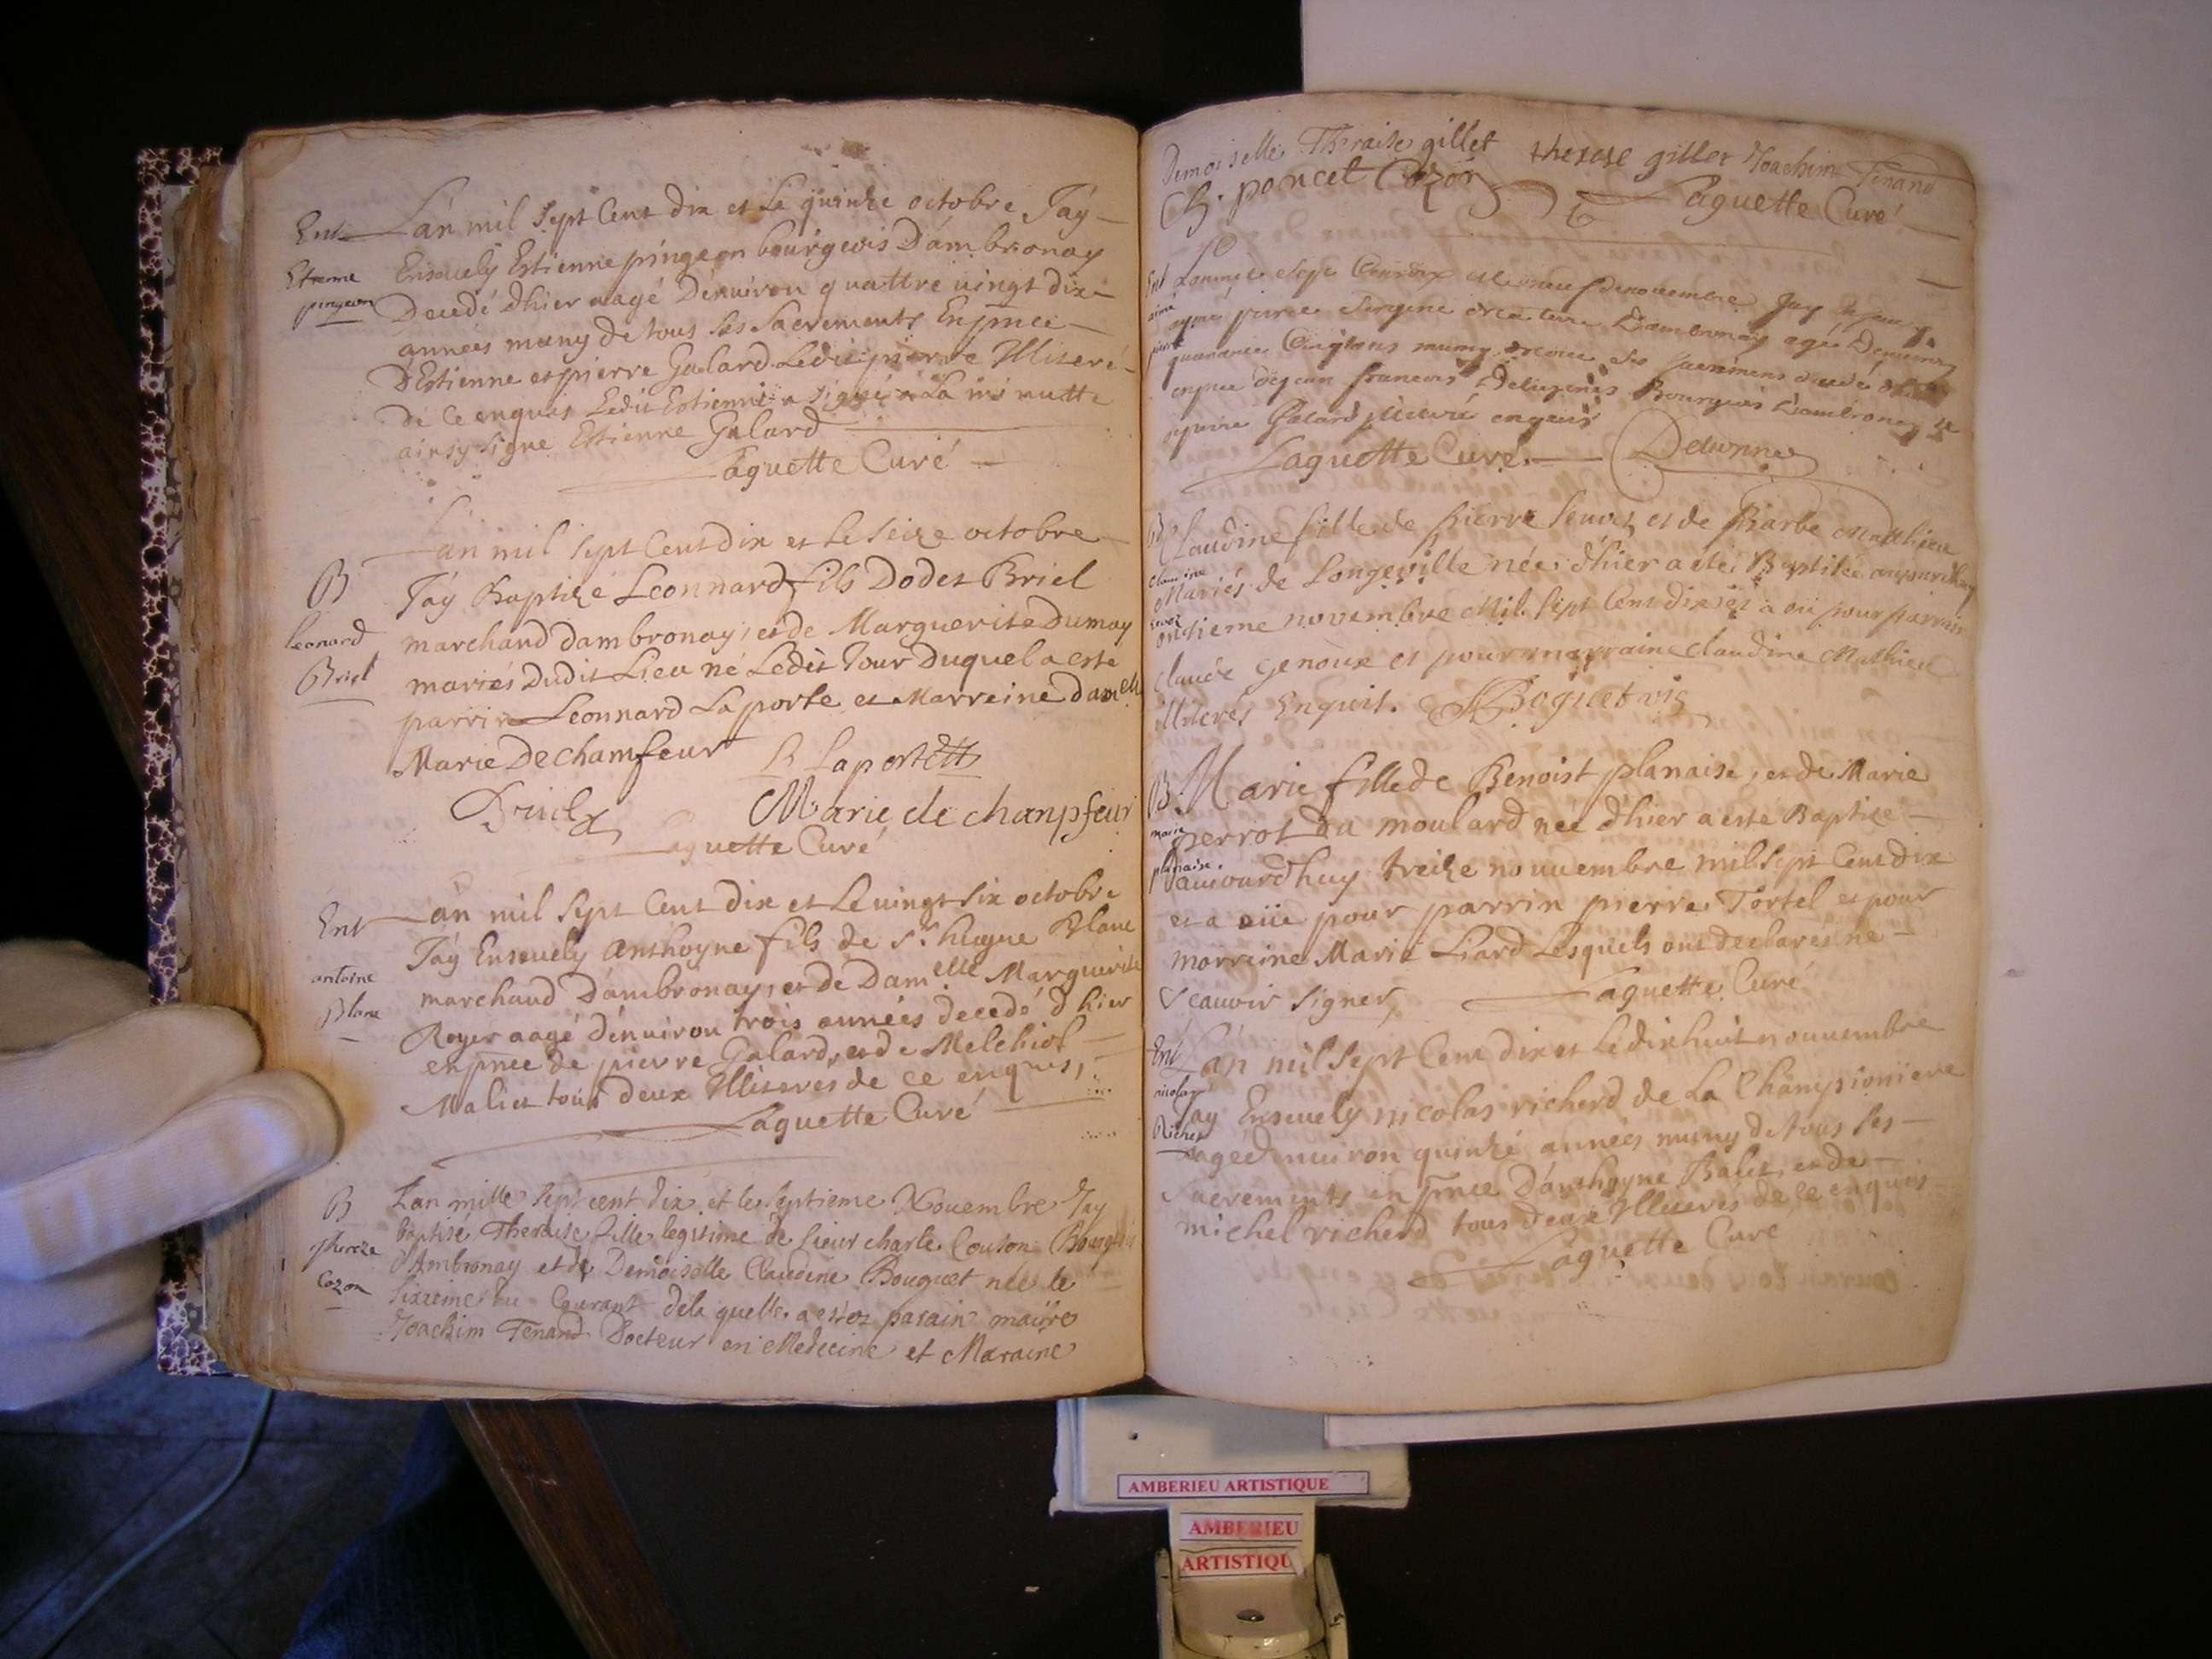 Ent
Etienne
pingeon
L'an mil sept Cent dix et Le quinze octobre J'ay
Ensevely Estienne pingeon bourgeois D'ambronay
Decedé d'hier aagé D'environ quattre vingt dix
années muny de tous ses Sacrements En pnce
D'Estienne et pierre Galard Ledit pierre Illiteré
de ce enquis Ledit Estienne a signé a La minutte
ainsy signe Estienne Galard
Laguette Curé
B
leonard
Briel
L'an mil sept Cent dix et le seize octobre
J'ay Baptizé Leonnard fils Dodet Briel
marchand dambronay, et de Marguerite Dumay
mariés Dudit Lieu né Ledit Jour Duquel a esté
parrin Leonnard Laporte et Marreine damelle
Marie Dechamfeur L Laporte
Briel Marie de chanpfeur
Laguette Curé
Ent
antoine
Blanc
L'an mil sept Cent dix et Le vingt six octobre
J'ay Ensevely Anthoyne fils de Sr hugue Blanc
marchand D'ambronay, et de Dam.elle Marguerite
Royer aagé d'environ trois années decedé d'hier
en pnce de pierre Galard, et de Melchiol
Maliet tous deux Illiterés de ce enquis,
Laguette Curé
B
thereze
Cozon
L'an mille sept cent dix et le septieme Novembre J'ay
baptisé Theraise fille legitime de sieur charle Couson Bourgeois
d'Ambronay et de Demoiselle Claudine Bouquet née le
sixieme du Courant de la quelle a estez parain maitre
Joachim Tenand Docteur en Medecine et Maraine
Demoiselle Theraise gillet therese gillet Joachim Tenand
Ch. poncet Cozon Laguette Curé
Ent
aimé
pierre
L'an mil sept Cent dix et le neuf de novembre Jay
aymé pierre sergent de la terre D'ambronay agé Denviron
quarante Cinq ans muny de tous ses sacrémens decedé
en pnce de jean francois Bourgeois D'ambronay et
de pierre Galard enquis
Laguette Curé.
B
Claudine
Claudine fille de pierre et de Barbe Mathieu
Mariés de Longeville née d'hier a été Baptisée aujourdhuy
onzieme novembre Mil sept Cent dix et a eü pour parrain
Claude genoux et pour marraine Claudine Mathieu
illiterés Enquis. Boguet vic
B
marie
planaise.
Marie fille de Benoist planaise, et de Marie
perrot du moulard née d'hier a esté Baptizé
aujourd'huy treize nouvembre mil sept Cent dix
et a eüe pour parrin pierre Tortel et pour
marreine Marie Liard Lesquels ont declarés ne
scauoir signer, Laguette Curé
Ent
nicolas
Richer
L'an mil sept Cent dix et Le dixhuit nouvembre
J'ay Ensevely nicolas richerd de La Championiere
aagé denviron quinze années muny de tous ses
sacrements en pnce D'anthoyne Balet, et de
michel richerd tous deux Illiterés de ce enquis
Laguette Curé
AMBERIEU ARTISTIQUE
AMBERIEU
ARTISTIQU